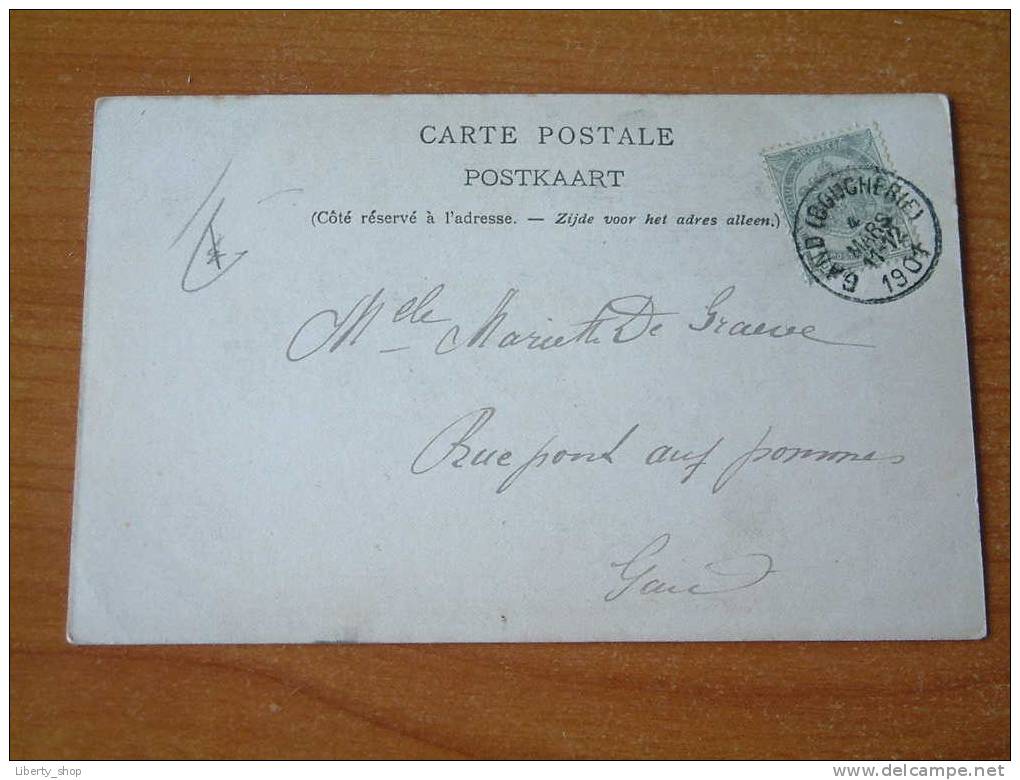 CARTE POSTALE
POSTKAART
(Côté réservé à l'adresse. — Zijde voor het adres alleen.)
GAND (BOUCHERIE)
4
MARS
11-12
1901
Mlle Mariette De Graeve
Rue pont aux pommes
Gand
Liberty_shop
www.delcampe.net